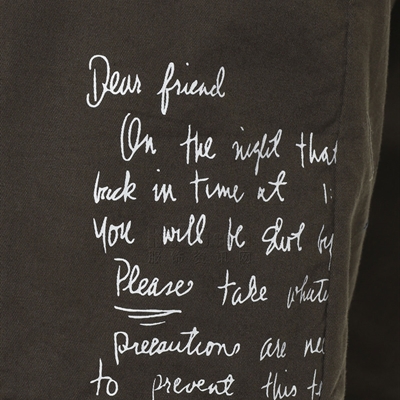 Dear friend
On the night that
back in time at 1:
you will be shot by
Please take whate
precautions are nec
to prevent this te